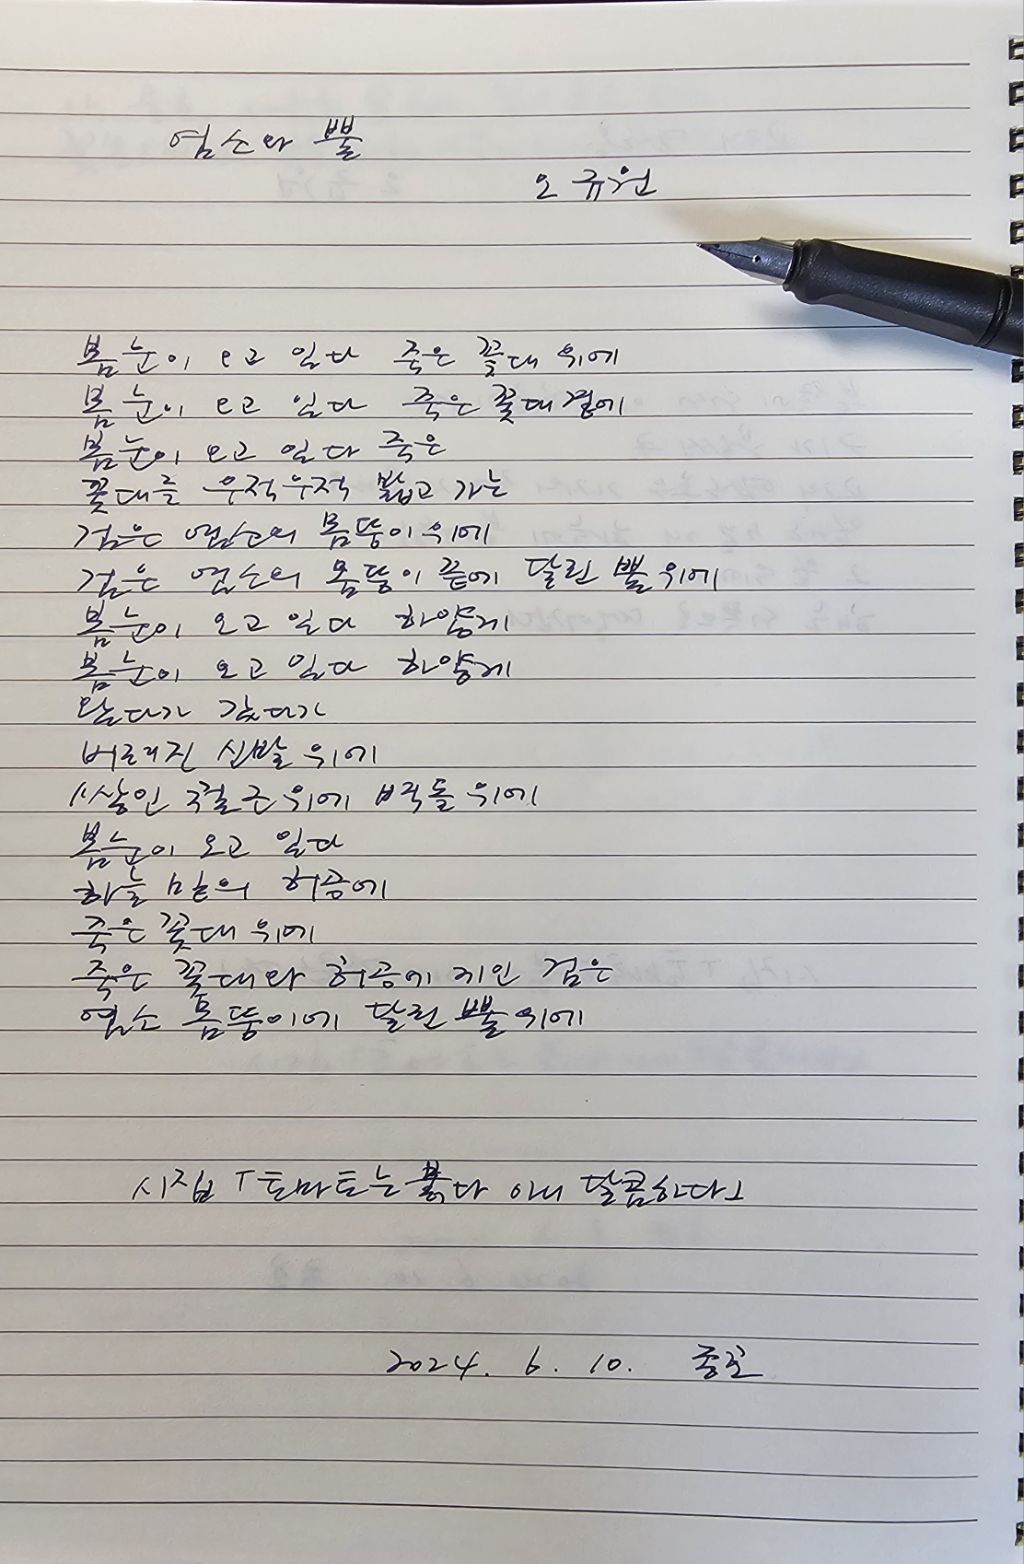 염소와 뿔
오규원
봄눈이 오고 있다 죽은 꽃대 위에
봄눈이 오고 있다 죽은 꽃대 곁에
봄눈이 오고 있다 죽은
꽃대를 우적우적 밟고 가는
검은 염소의 몸뚱이 위에
검은 염소의 몸뚱이 끝에 달린 뿔 위에
봄눈이 오고 있다 하얗게
봄눈이 오고 있다 하얗게
왔다가 갔다가
버려진 신발 위에
쌓인 철근 위에 벽돌 위에
봄눈이 오고 있다
하늘 밑의 허공에
죽은 꽃대 위에
죽은 꽃대와 허공에 끼인 검은
염소 몸뚱이에 달린 뿔 위에
시집 「토마토는 붉다 아니 달콤하다」
2024. 6. 10.